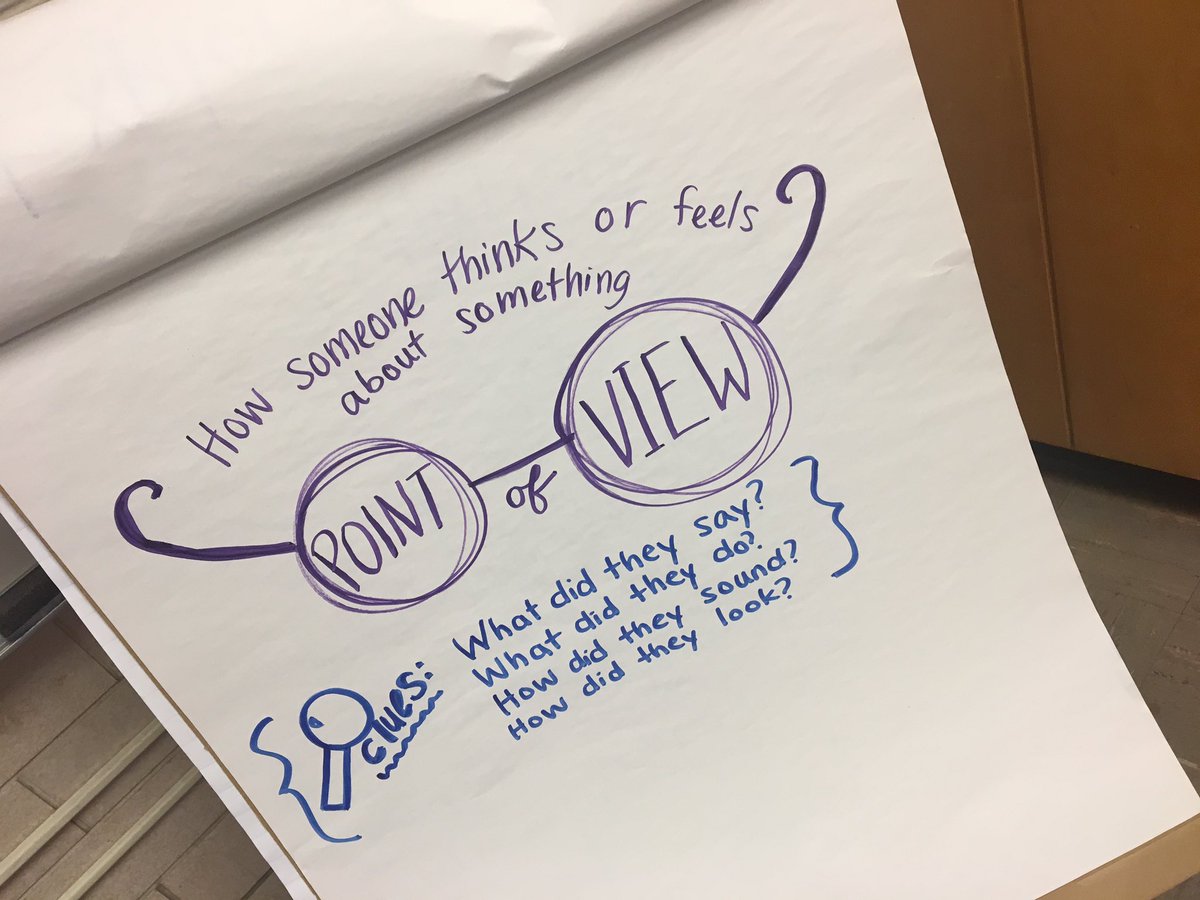 How someone thinks or feels
about something
POINT of VIEW
Clues: What did they say?
What did they do?
How did they sound?
How did they look?